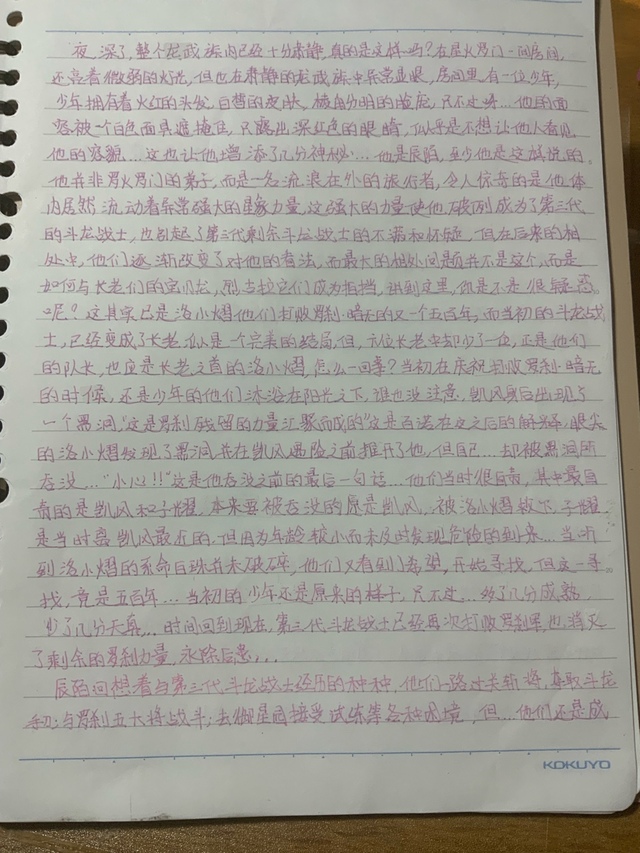 夜,深了,整个龙武族内已经十分寂静,真的是这样吗?在星火罗门一间房间,
还亮着微弱的灯光,但也在寂静的龙武族中异常显眼,房间里,有一位少年,
少年拥有着火红的头发,白皙的皮肤,棱角分明的脸庞,只不过呀…他的面
容被一个白色面具遮掩住,只露出深红色的眼睛,似乎是不想让他人看见
他的容貌…这也让他增添了几分神秘…他是辰陌,至少他是这样说的。
他并非罗火罗门的弟子,而是一名流浪在外的旅行者,令人惊奇的是他体
内居然流动着异常强大的星象力量,这强大的力量使他破例成为了第三代
的斗龙战士,也引起了第三代剩余斗龙战士的不满和怀疑,但在后来的相
处中,他们逐渐改变了对他的看法,而最大的相处问题并不是这个,而是
如何与长老们的宝贝龙,烈古拉它们成为拍挡,讲到这里,你是不是很疑惑
呢?这其实已是洛小熠他们打败罗刹·暗无的又一个五百年,而当初的斗龙战
士,已经变成了长老,似是一个完美的结局,但,六位长老中却少了一位,正是他们
的队长,也应是长老之首的洛小熠,怎么一回事?当初在庆祝打败罗刹·暗无
的时候,还是少年的他们沐浴在阳光之下,谁也没注意,凯风身后出现了
一个黑洞,"这是罗刹残留的力量汇聚而成的"这是百诺在这之后的解释,眼尖
的洛小熠发现了黑洞,并在凯风遇险之前推开了他,但自己…却被黑洞所
吞没…"小心!!"这是他吞没之前的最后一句话…他们当时很自责,其中最自
责的是凯风和子耀,本来要被吞没的原是凯风,被洛小熠救下,子耀
是当时离凯风最近的,但因为年龄较小而未及时发现危险的到来…当听
到洛小熠的系命白珠并未破碎,他们又看到了希望,开始寻找,但这一寻
找,竟是五百年…当初的少年还是原来的样子,只不过…多了几分成熟,
少了几分天真…时间回到现在,第三代斗龙战士已经再次打败罗刹,也消灭
了剩余的罗刹力量,永除后患…
辰陌回想着与第三代斗龙战士经历的种种,他们一路过关斩将,夺取斗龙
手环,与罗刹五大将战斗,去狮星国接受试练等各种困境,但…他们还是成
KOKUYO